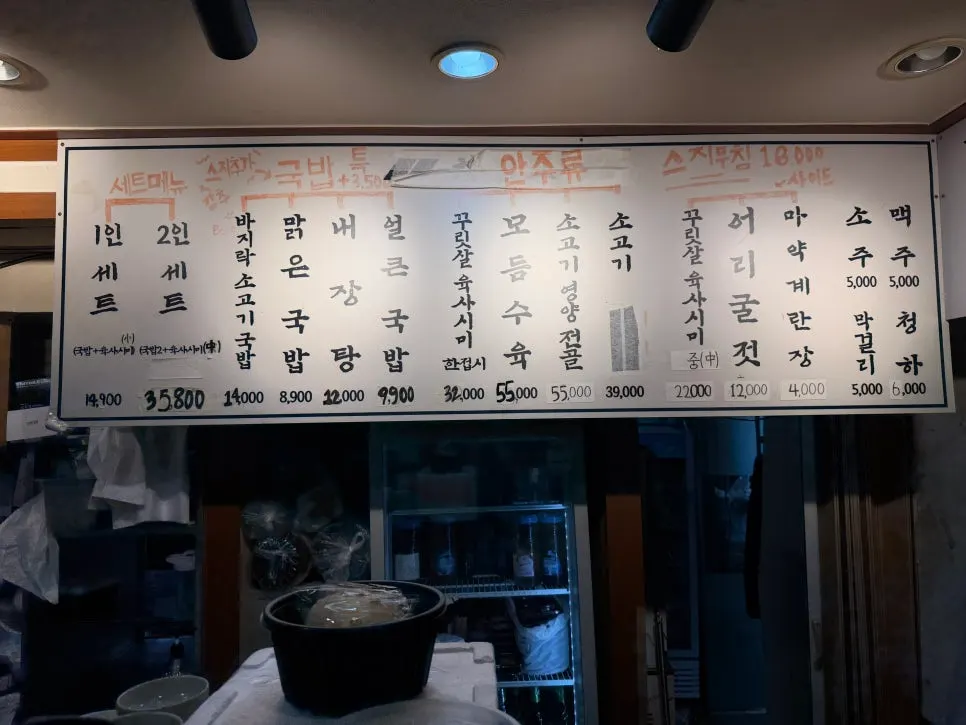 세트메뉴
1인 세트
(小)
(국밥+육사시미)
14,900
2인 세트
(국밥2+육사시미(中)
35,800
스지추가
국밥
특
+3,500
바지락소고기국밥
14,000
맑은국밥
8,900
내장탕
12,000
얼큰국밥
9,900
안주류
꾸릿살육사시미
한접시
32,000
모듬수육
55,000
소고기영양전골
55,000
소고기
39,000
스지무침 18,000
사이드
꾸릿살육사시미
중(中)
22000
어리굴젓
12,000
마약계란장
4,000
소주
5,000
맥주
5,000
막걸리
5,000
청하
6,000